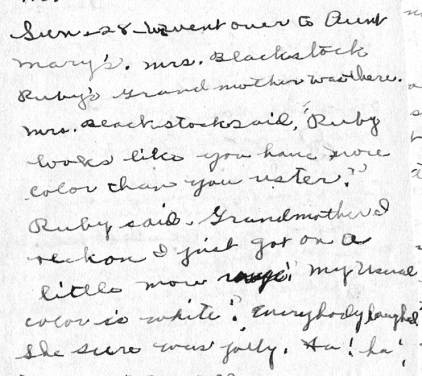 Sun-28-Went over to Aunt
Mary's. Mrs. Blackstock
Ruby's Grandmother was there.
Mrs. Blackstock said, "Ruby
looks like you have more
color than you uster."
Ruby said Grandmother I
reckon I just got on a
little more rouge." My Usual
color is white". Everybody laughed
She sure was jolly. Ha! ha!